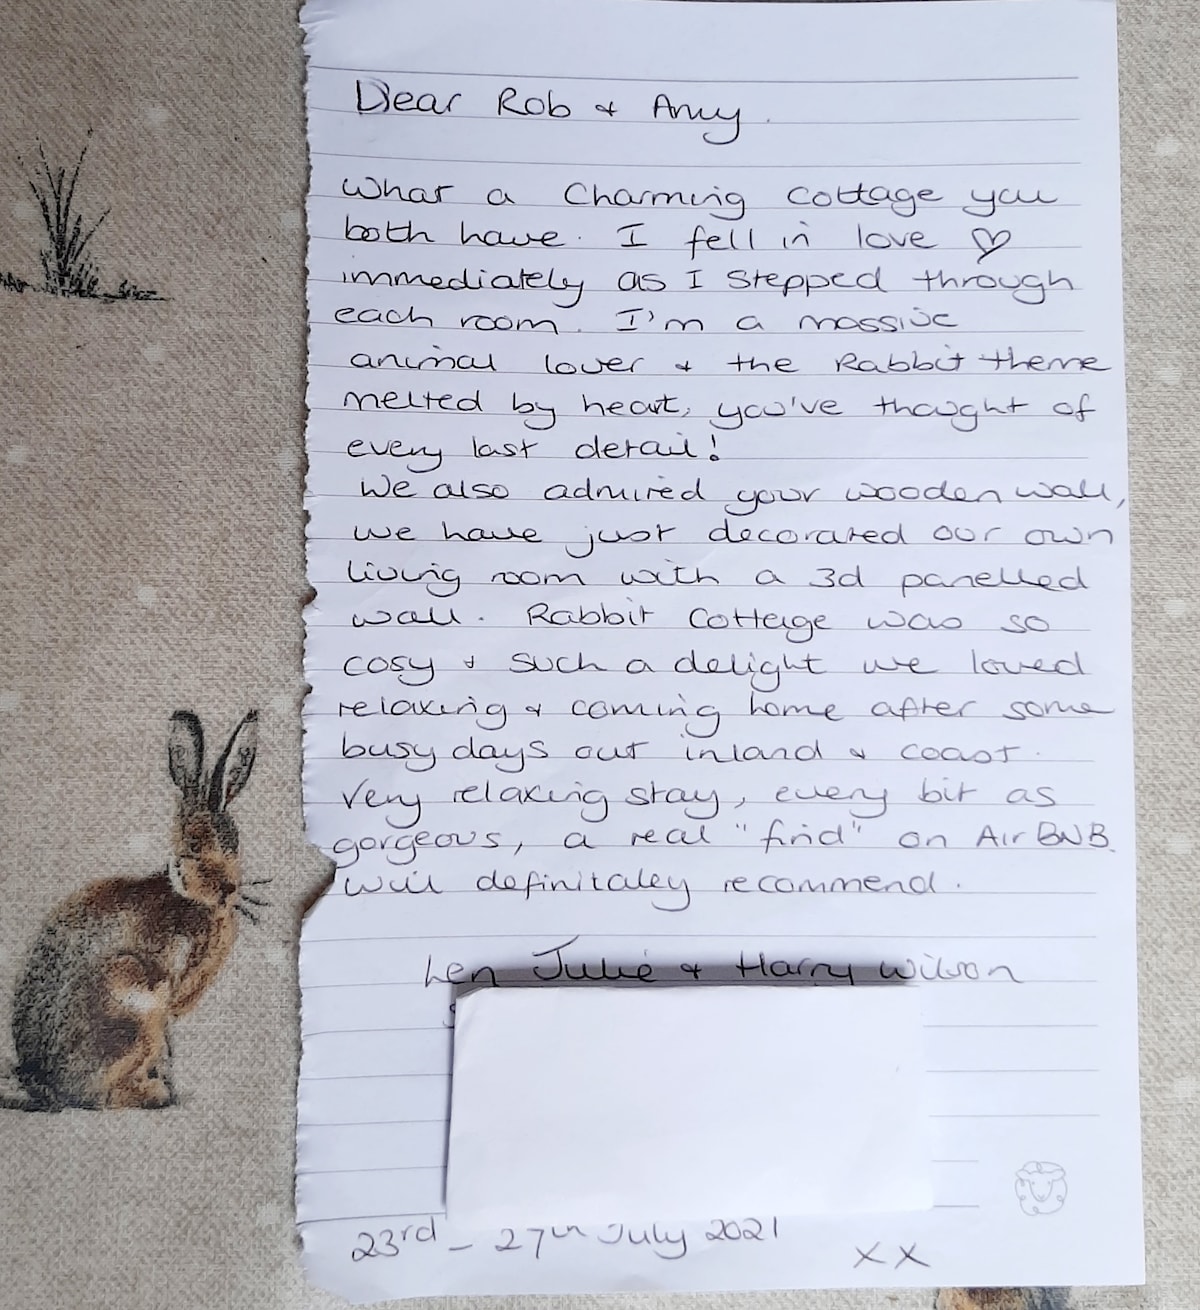 Dear Rob & Amy.
What a Charming Cottage you
both have. I fell in love ♡
immediately as I stepped through
each room. I'm a massive
animal lover & the Rabbit theme
melted by heart, you've thought of
every last detail!
We also admired your wooden wall,
we have just decorated our own
living room with a 3d panelled
wall. Rabbit Cottage was so
cosy & such a delight we loved
relaxing & coming home after some
busy days out inland & coast.
Very relaxing stay, every bit as
gorgeous, a real "find" on Air BNB.
Will definitaley recommend.
Len Julie & Harry Wilson
23rd - 27th July 2021
XX